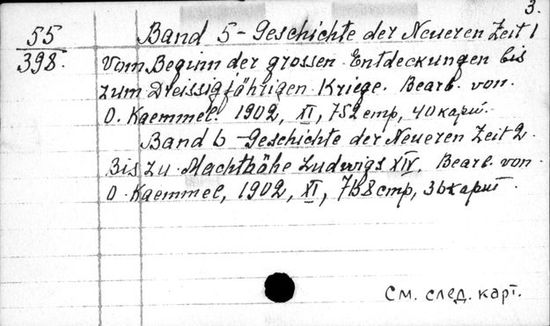 3.
55
398.
Band 5 - Geschichte der Neueren Zeit 1
Vom Beginn der grossen Entdeckungen bis
zum Dreissigjährigen Kriege. Bearb. von
O. Kaemmel. 1902, XI, 752 стр, 40 карт.
Band 6 - Geschichte der Neueren Zeit 2.
Bis zu Machthöhe Ludwigs XIV. Bearb. von
O. Kaemmel, 1902, XI, 758 стр, 36 карт.
См. след. карт.